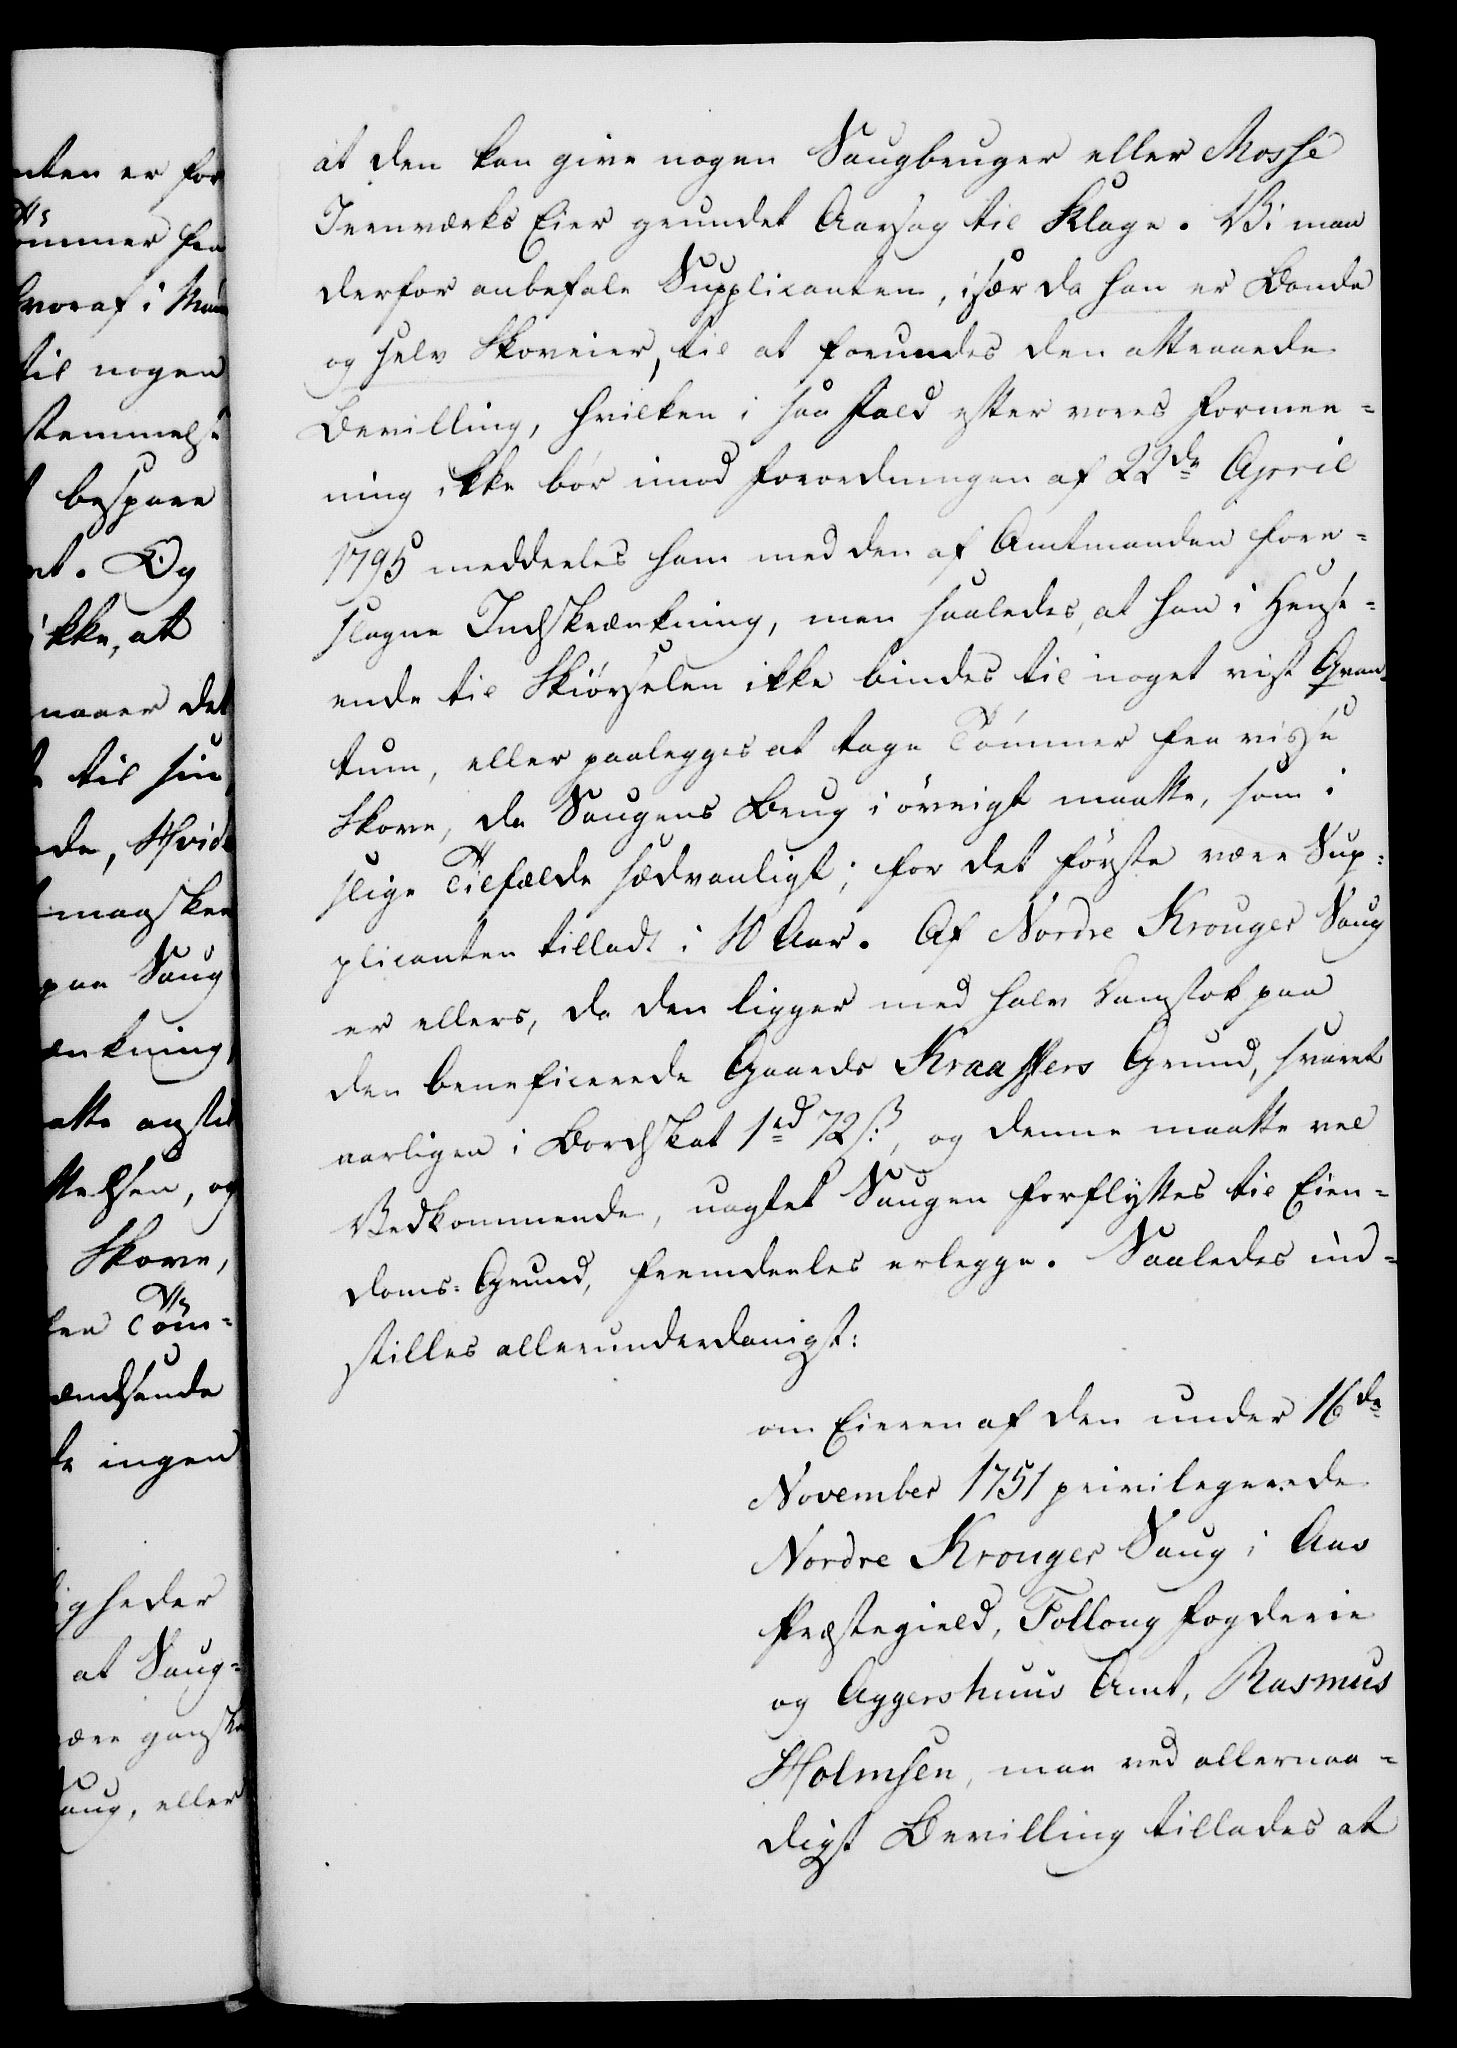 at den kan give nogen Saugbruger eller Mosse
Jernværks Eier grundet Aarsag til Klage. Vi maae
derfor anbefale Supplicanten, især da han er Bonde
og selv Skoveier, til at forundes den attraaede
Bevilling, hvilken i saa Fald efter vores Formee-
ning ikke bör imod Forordningen af 22de April
1795 meddeeles ham med den af Amtmanden fore-
slagne Indskrænkning, men saaledes, at han i Hense-
ende til Skiörselen ikke bindes til noget vist Qvan-
tum, eller paalegges at tage Tömmer fra visse
Skove, da Saugens Brug i övrigt maatte, som i
slige Tilfælde sædvanligt; for det förste være Sup-
plicanten tilladt i 10 Aar. Af Nordre Krouger Saug
er ellers, da den ligger med halv Damstok paa
den beneficerede Gaards Kraafters Grund, svaret
aarligen i Bordskat 1rd 72 s:, og denne maatte vel
Vedkommende, uagtet Saugen forflyttes til Eien-
doms-Grund, fremdeeles erlegge. Saaledes ind-
stilles allerunderdanigst:
om Eieren af den under 16de
November 1751 privilegerede
Nordre Krouger Saug i Aas
Præstegield, Folloug Fogderie
og Aggershuus Amt, Rasmus
Holmsen, maa ved allernaa-
digst Bevilling tillades at